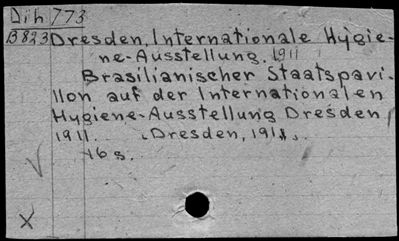 Dih 773
B823 Dresden, Internationale Hygie-
ne-Ausstellung. 1911
Brasilianischer Staatspavi-
llon auf der Internationalen
Hygiene-Ausstellung Dresden
1911. Dresden, 1911.
16 s.